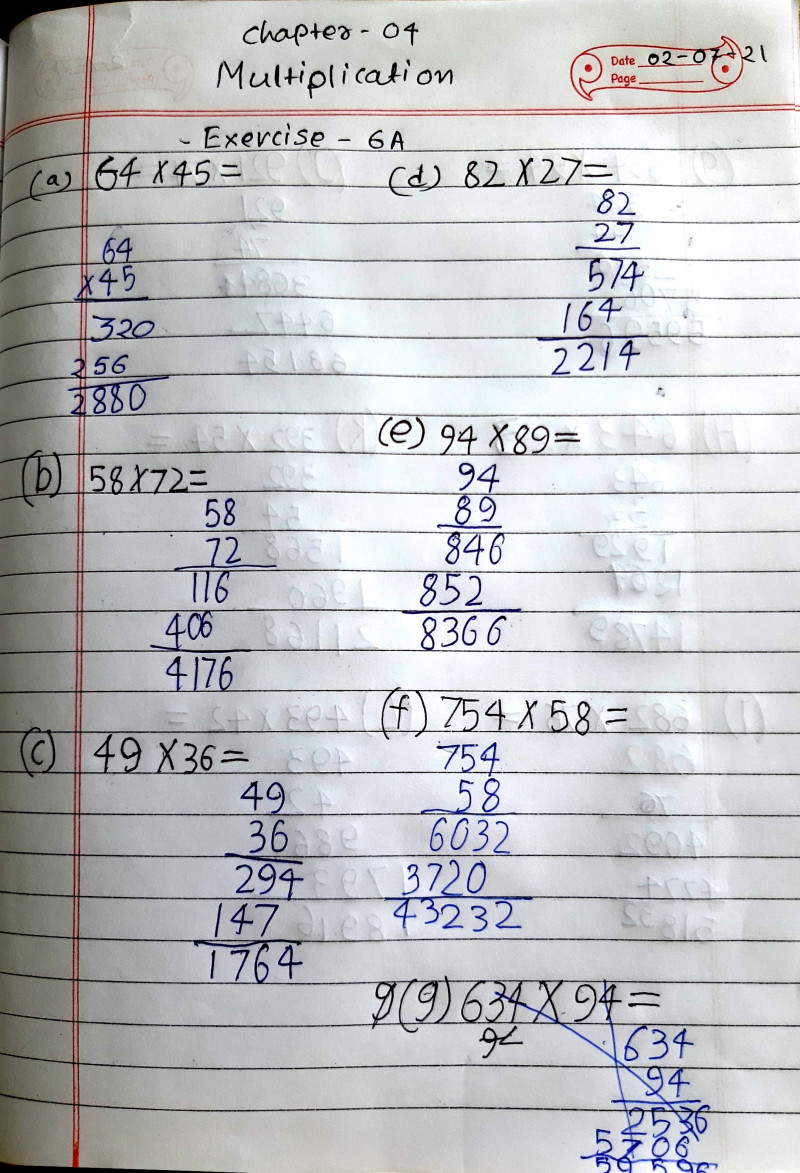 Chapter - 04
Multiplication
Date 02-07-21
Page
- Exercise - 6A
(a) 64 X 45 =
64
X 45
320
256
2880
(b) 58 X 72 =
58
72
116
406
4176
(c) 49 X 36 =
49
36
294
147
1764
(d) 82 X 27 =
82
27
574
164
2214
(e) 94 X 89 =
94
89
846
852
8366
(f) 754 X 58 =
754
58
6032
3720
43232
(g) 634 X 94 =
634
94
2536
5706